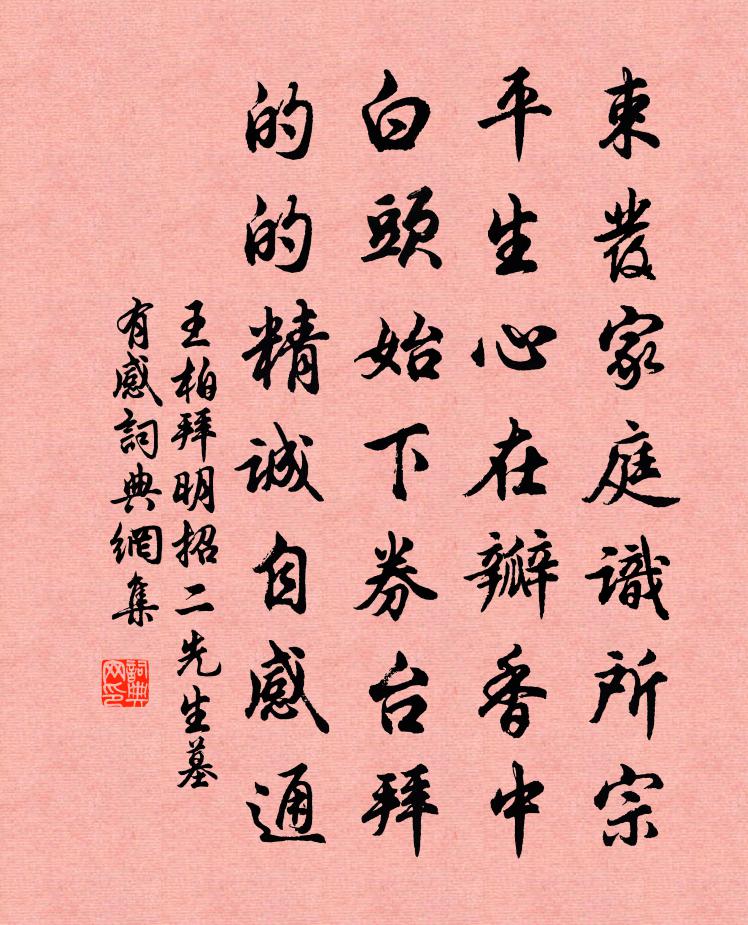 束發家庭識所宗
平生心在瓣香中
白頭始下券台拜
的的精誠自感通
王柏拜明招二先生墓
有感詞典網集
詞典
网印